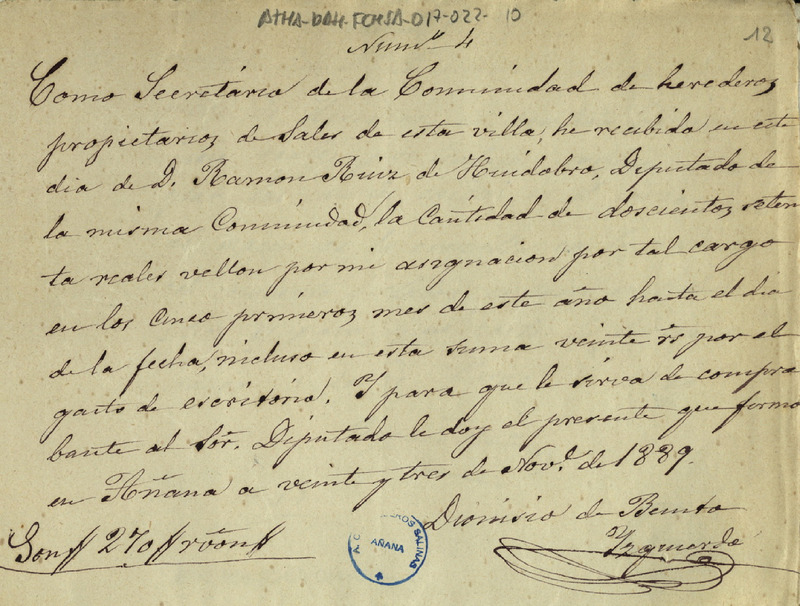 ATHA-DAH-FCHSA-017-022-10
12
Num.º 4
Como Secretário de la Comunidad de herederos
propietarios de Sales de esta villa, he recibido en este
dia de D. Ramon Ruiz de Huidobro, Diputado de
la misma Comunidad, la Cántidad de doscientos seten
ta reales vellon por mi asignacion por tal cargo
en los cinco primeros mes de este año hasta el dia
de la fecha, incluso en esta suma veinte rs por el
gasto de escritorio. Y para que le sirva de compro
bante al Sõr. Diputado le doy el presente que firmo
en Añana a veinte y tres de Nov.e de 1889.
Dionisio de Benito
Yzquierdo
Son // 270 // rõn //
A. C. SALINAS
AÑANA